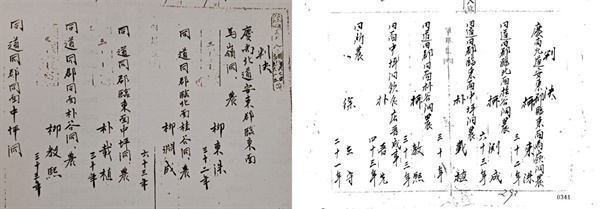 判決
慶尚北道安東郡臨東面
馬嶺洞 農
柳東洙
三十二年
同道同郡臨北面桂谷洞農
柳淵成
六十三年
同道同郡臨東面中坪洞農
朴載植
三十年
同道同郡同面朴谷洞農
柳教熙
三十三年
同道同郡同面中坪洞
判決
慶尚北道安東郡臨東面馬嶺洞農
柳東洙
三十二年
同道同郡臨北面桂谷洞農
柳淵成
六十三年
同道同郡臨東面中坪洞農
朴載植
三十年
教熙
三十三年
同面中坪洞飲食店
朴
四十三年
同所農
二十一年
0341